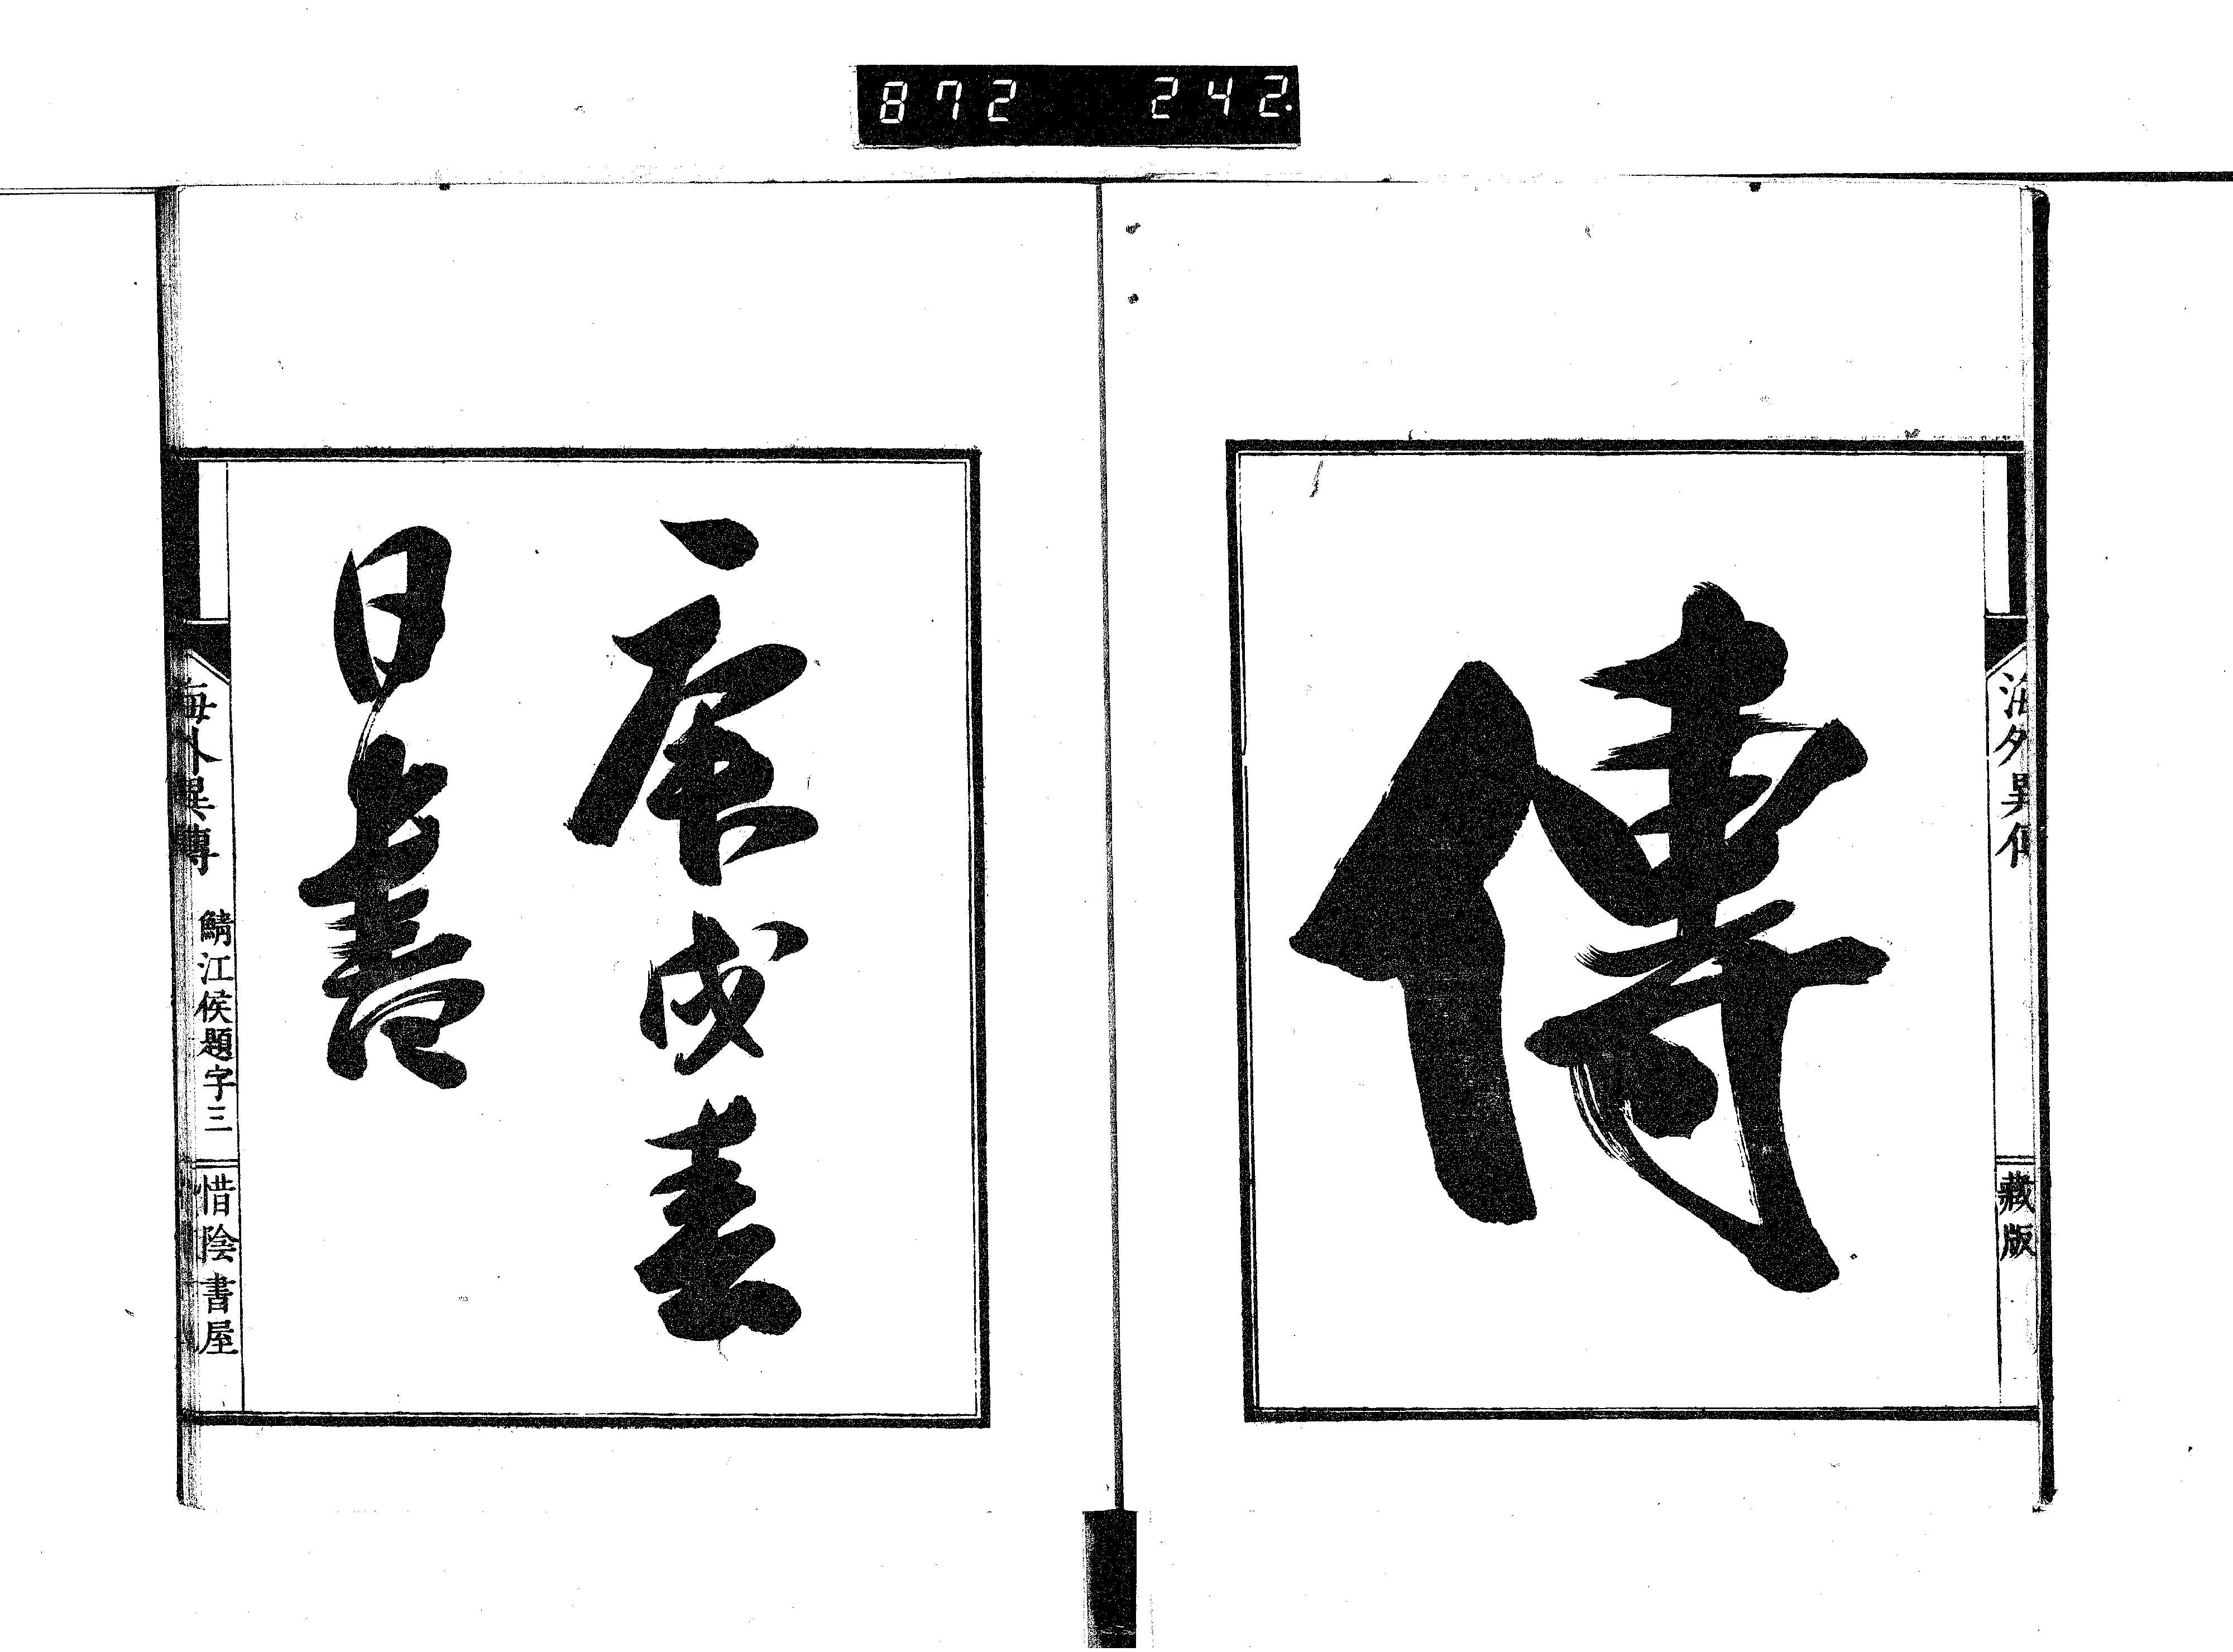 872 242
海外異傳
藏版
傳
庚戌春
日書
海外異傳 鯖江侯題字三 惜陰書屋